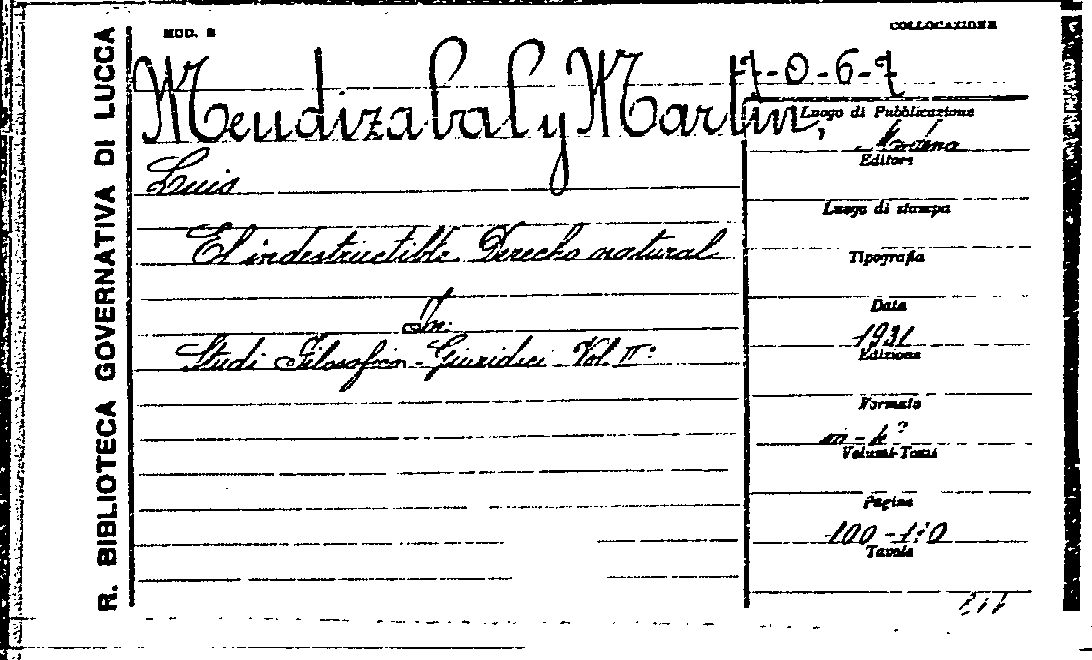 R. BIBLIOTECA GOVERNATIVA DI LUCCA
MOD. B
COLLOCAZIONE
Mendizabal y Martin,
7-0-6-7
Luis
El indestructible Derecho natural
In:
Studi Filosofico-Giuridici Vol. II°
Luogo di Pubblicazione
Modena
Editore
Luogo di stampa
Tipografia
Data
1931
Edizione
Formato
in-4°
Volumi-Tomi
Pagine
100-110
Tavole